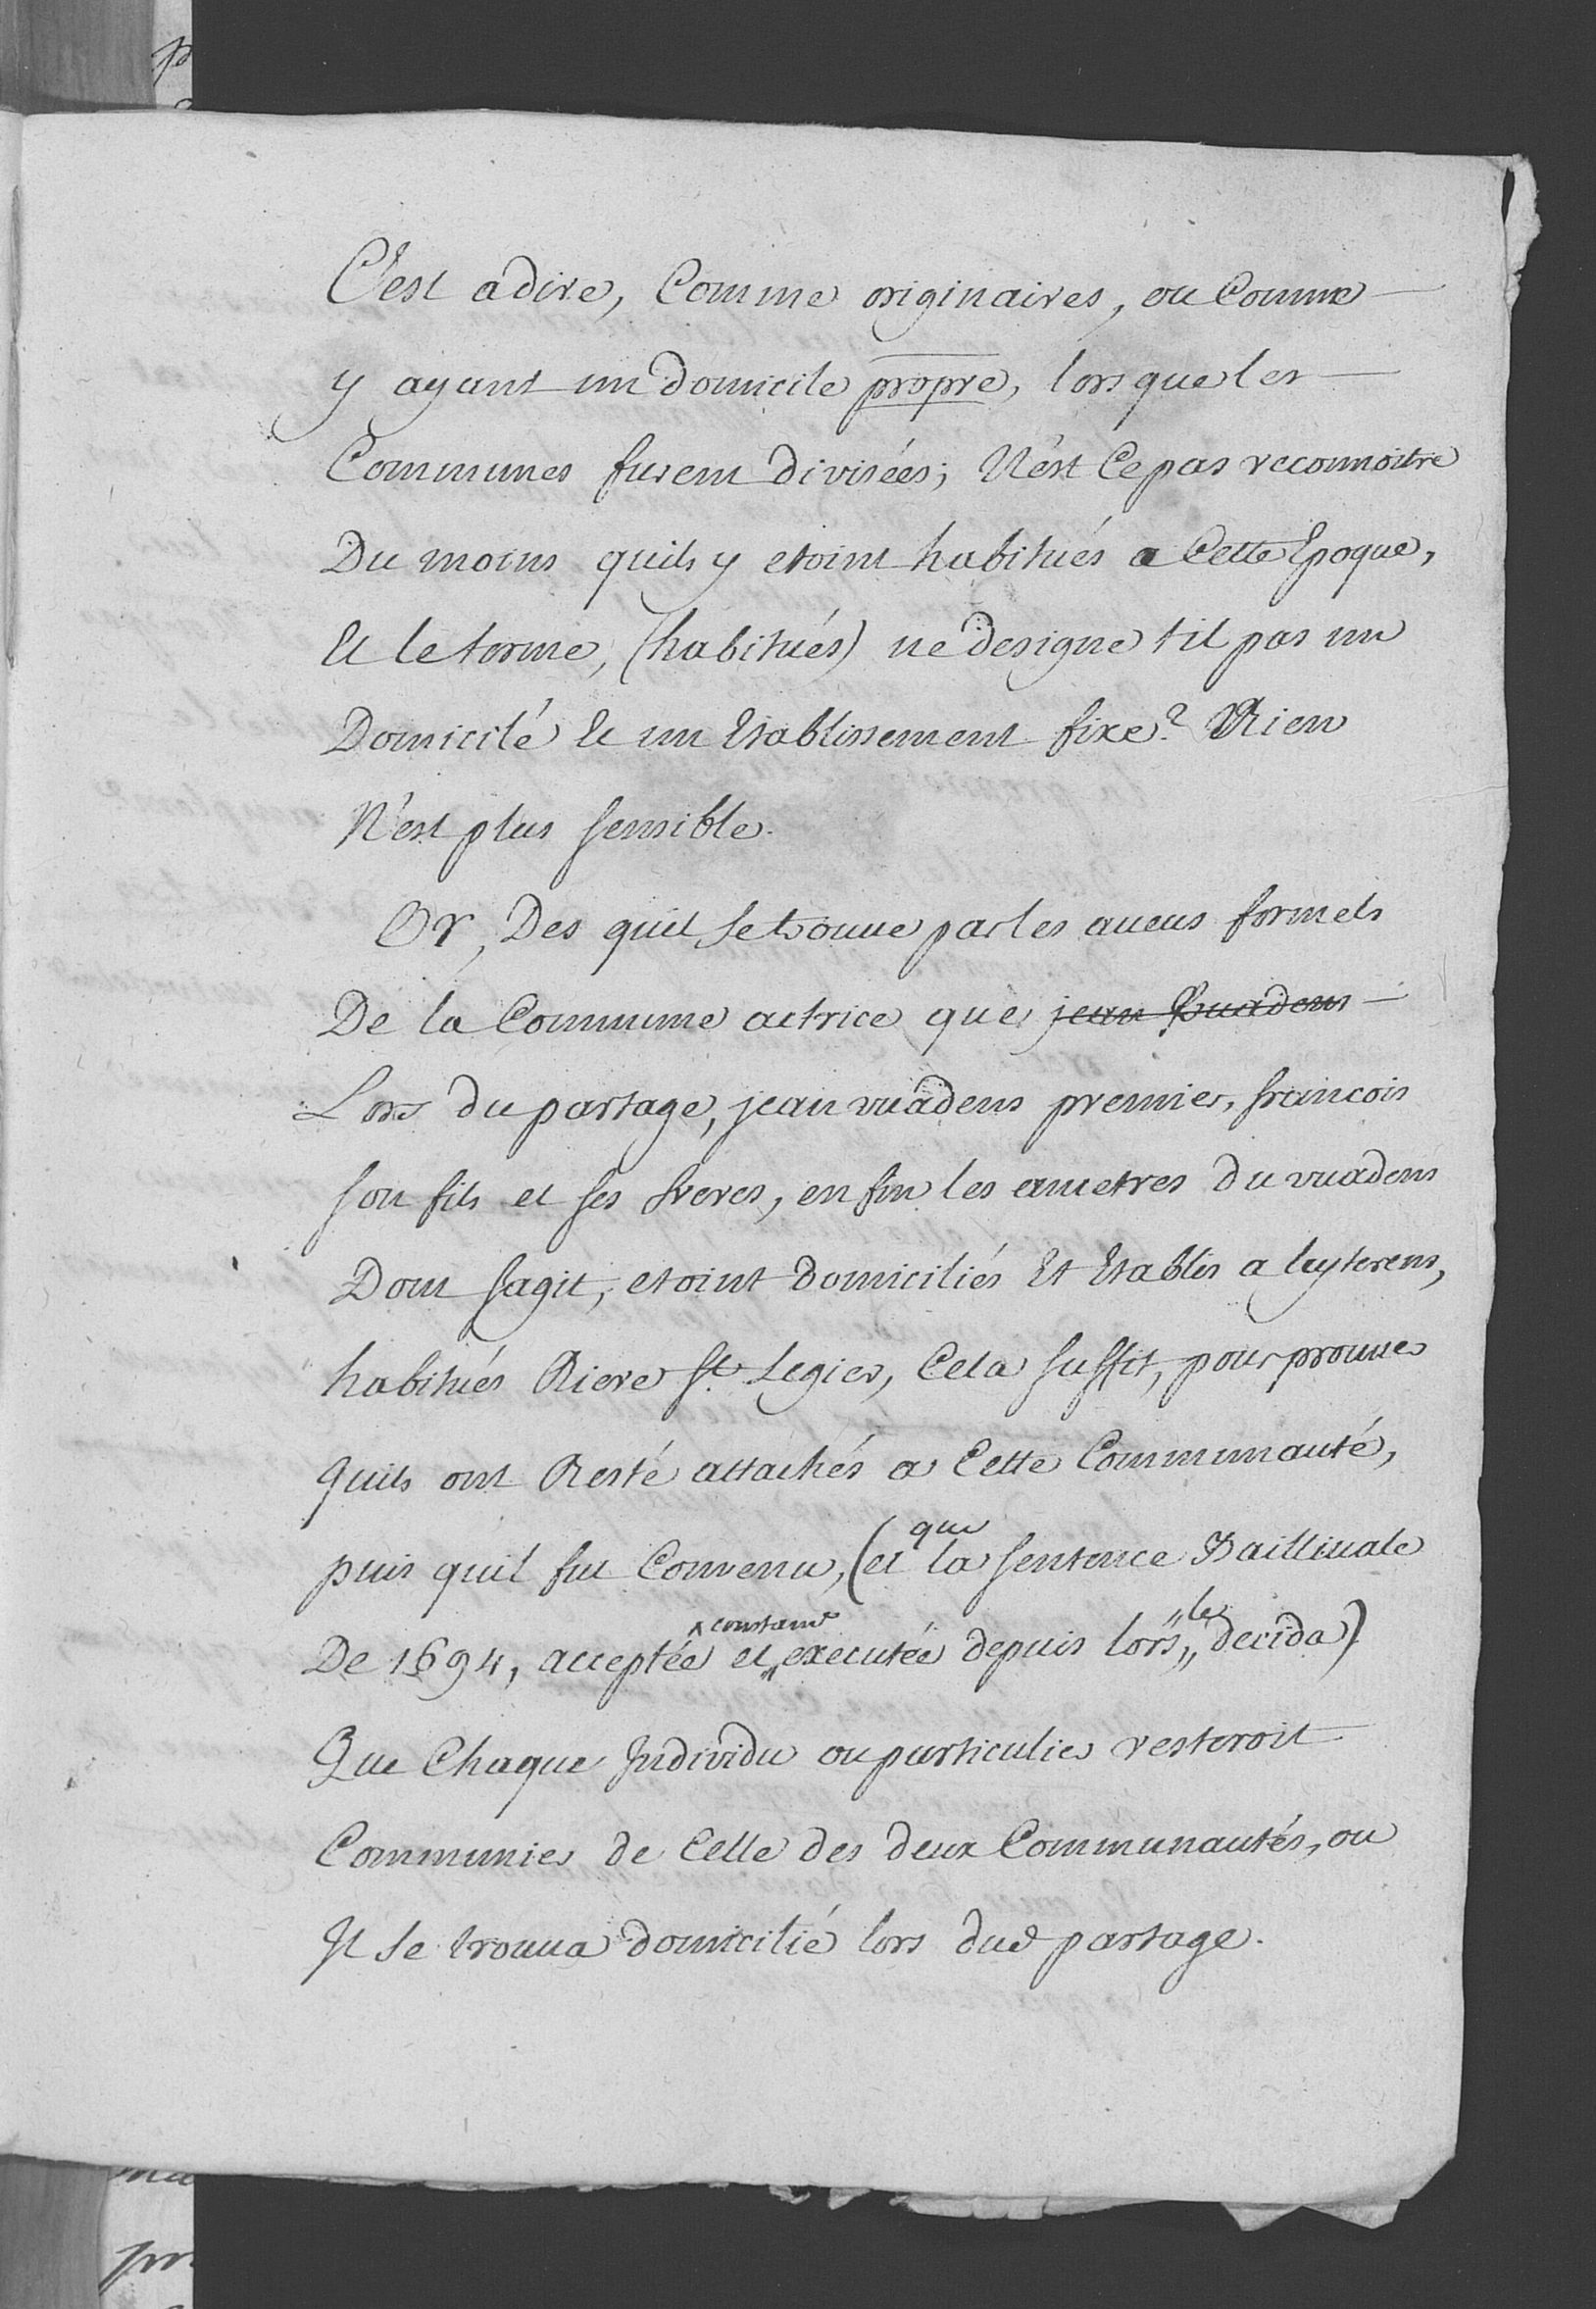 C'est adire, Comme originaires, ou Comme
y ayant un domicile propre, lorsque les
Communes furent divisées; N'est Ce pas reconnoitre
Du moins quils y etoint habitués a Cette Epoque,
Et le terme, (habitués) ne designe t'il pas un
Domicilé Et un Etablissement fixe? Rien
N'est plus sensible.
Or, Des quil se trouve par les aveus formels
De la Commune actrice que jean Vuadens
Lors du partage, jean vuadens premier, francois
son fils et ses freres, en fin les ancetres du vuadens
Dont sagit, etoint domiciliés Et Etablis a leyterens,
habitués Riere St. Legier, Cela suffit, pour prouver
quils ont Resté attachés a Cette Communauté,
puis quil fut Convenu, (et que la sentence Baillivale
De 1694, acceptée et constamt executée depuis lors, le decida)
Que Chaque Individu ou particulier resteroit
Communier de Celle des deux Communautés, ou
Il se trouva domicilié lors dud partage.